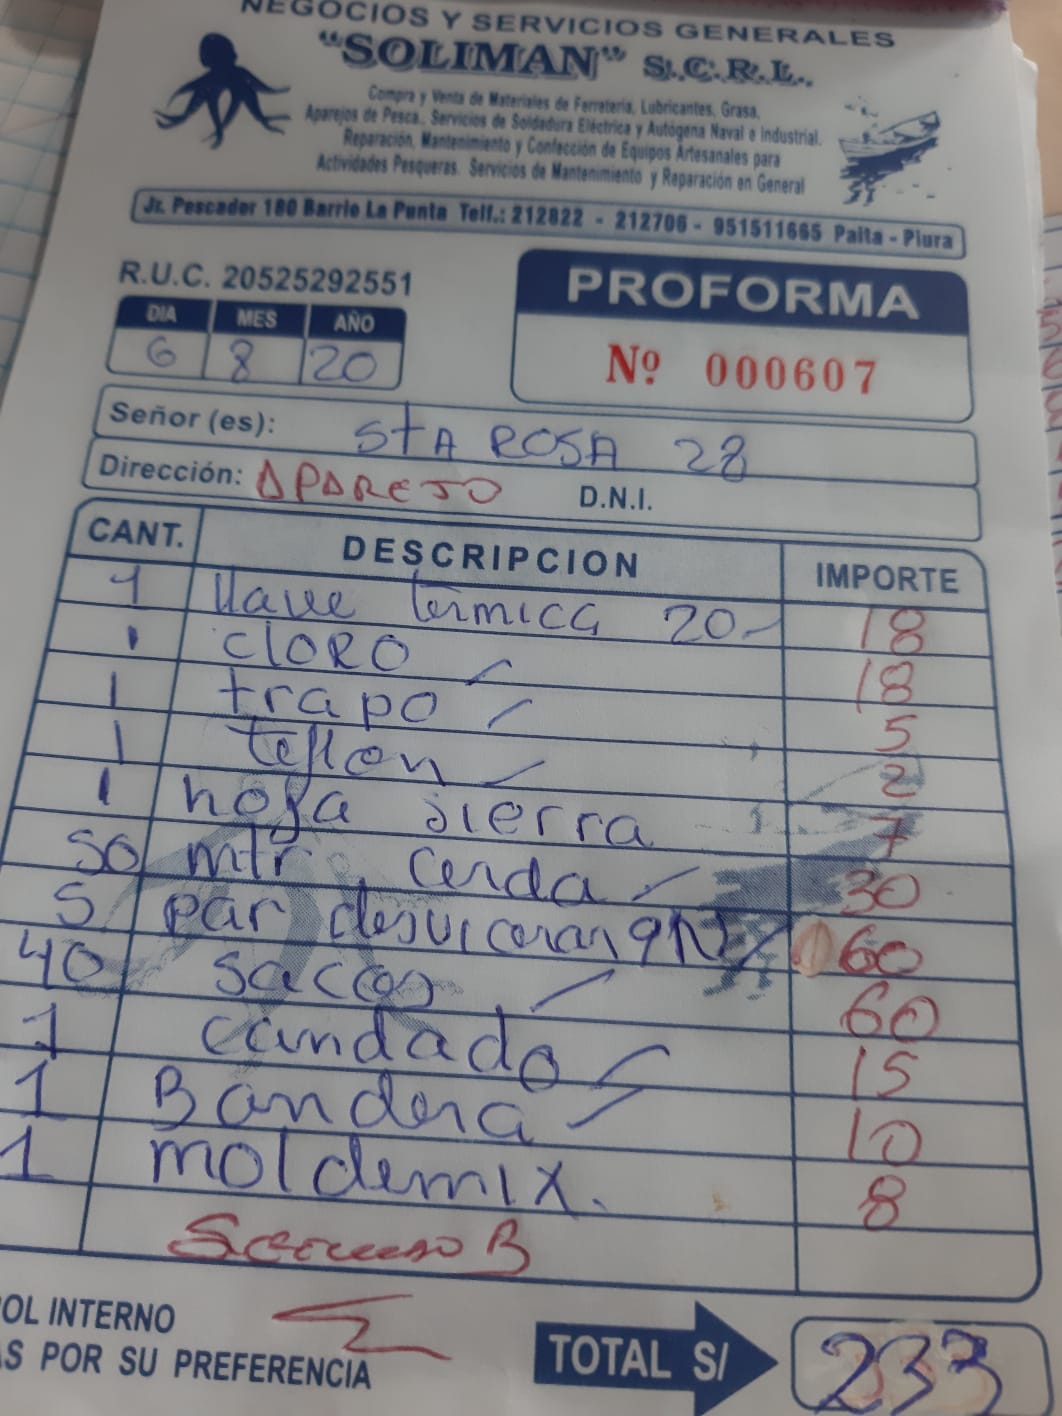 NEGOCIOS Y SERVICIOS GENERALES
"SOLIMAN" S.C.R.L.
Compra y Venta de Materiales de Ferretería, Lubricantes, Grasa,
Aparejos de Pesca., Servicios de Soldadura Eléctrica y Autógena Naval e Industrial.
Reparación, Mantenimiento y Confección de Equipos Artesanales para
Actividades Pesqueras. Servicios de Mantenimiento y Reparación en General
Jr. Pescador 180 Barrio La Punta Telf.: 212822 - 212706 - 951511665 Paita - Piura
R.U.C. 20525292551
PROFORMA
DIA MES AÑO
6 8 20
Nº 000607
Señor (es): StA ROSA 28
Dirección: APAREJO D.N.I.
CANT. DESCRIPCION IMPORTE
1 llave termica 20 18
1 cloro 18
1 trapo 5
1 teflon 2
1 hoja sierra 7
50 mtr. cerda 30
5 par 9N 60
40 sacos 60
1 candado 15
1 Bandera 10
1 moldemix. 8
B
OL INTERNO
AS POR SU PREFERENCIA
TOTAL S/ 233